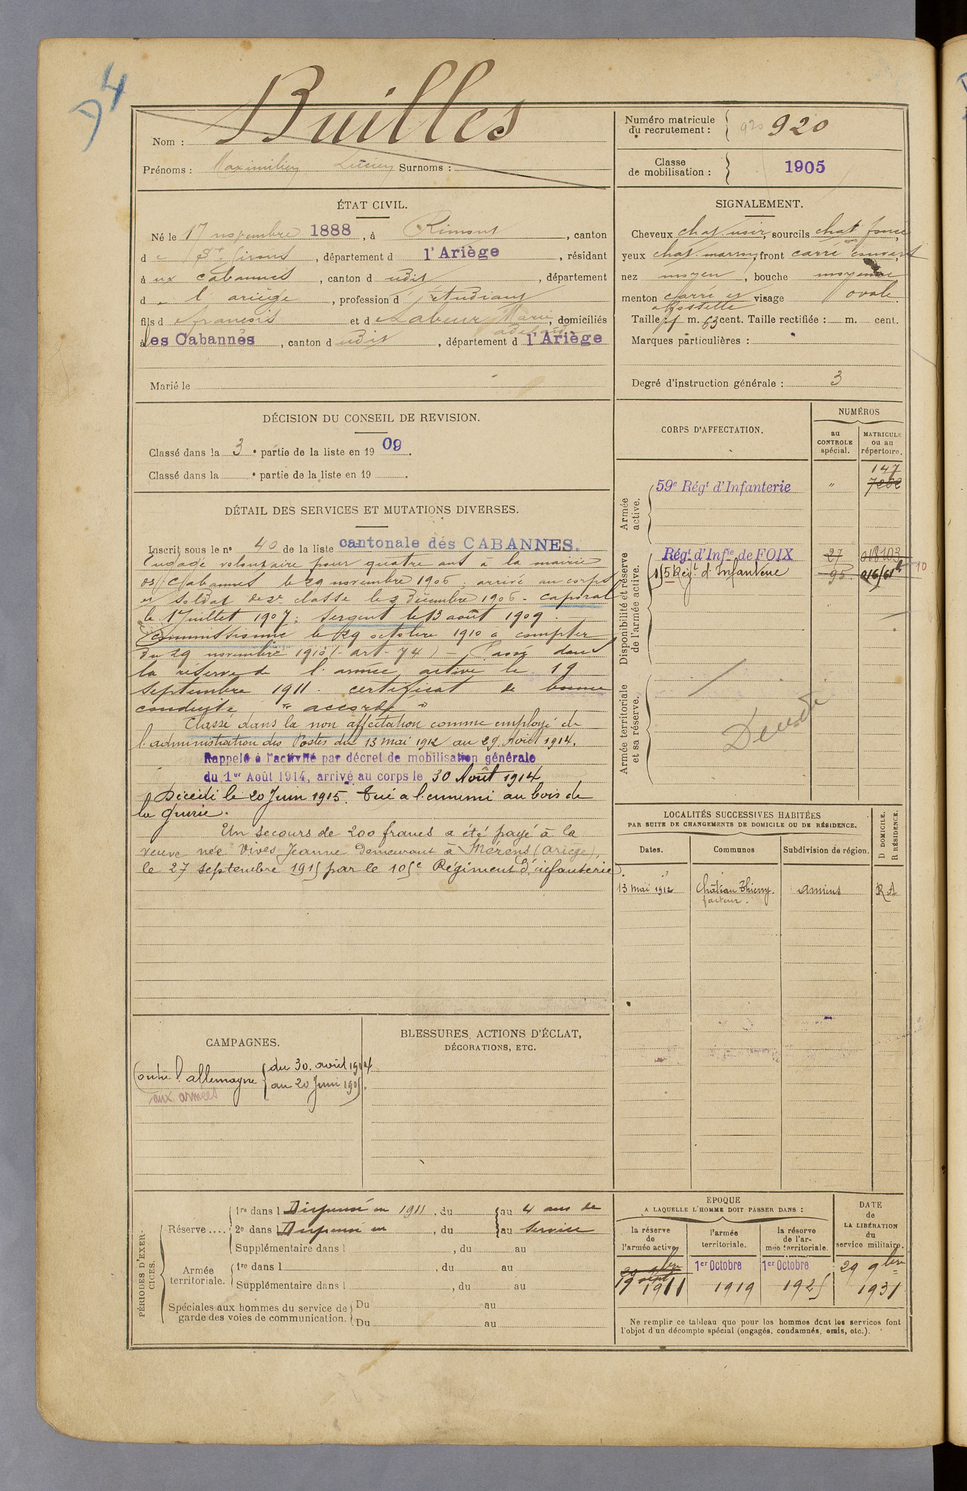 D4
Nom : Builles
Prénoms : Maximilien Lucien Surnoms :
Numéro matricule du recrutement : 920 920
Classe de mobilisation : 1905
ÉTAT CIVIL.
Né le 17 novembre 1888, à Rimont, canton
de St Girons, département d l'Ariège, résidant
à ux Cabannes, canton d udit, département
d e l'ariège, profession d'étudiant
fils de françois et de Labeur Marie, domiciliés
à les Cabannes, canton d udit, département d l'Ariège
Marié le
SIGNALEMENT.
Cheveux chat noir, sourcils chat foncé
yeux chat. marron, front carré
nez moyen, bouche moyenne
menton carré et fossette visage ovale.
Taille 1 m. 63 cent. Taille rectifiée : m. cent.
Marques particulières :
Degré d'instruction générale : 3
DÉCISION DU CONSEIL DE REVISION.
Classé dans la 3e partie de la liste en 1909.
Classé dans la e partie de la liste en 19 .
DÉTAIL DES SERVICES ET MUTATIONS DIVERSES.
Inscrit sous le n° 40 de la liste cantonale des CABANNES.
Engagé volontaire pour quatre ans à la mairie
des Cabannes le 29 novembre 1906. arrivé au corps
et soldat de 2e classe le 3 Décembre 1906. caporal
le 1er juillet 1907. Sergent le 13 août 1909.
Commissionné le 29 octobre 1910 à compter
du 29 novembre 1910 (art. 74) - Passé dans
la réserve de l'armée active le 19
septembre 1911. certificat de bonne
conduite "accordé"
Classé dans la non affectation comme employé de
l'administration des Postes du 13 mai 1912 au 29 Août 1914.
Rappelé à l'activité par décret de mobilisation générale
du 1er Août 1914, arrivé au corps le 30 Août 1914
Décédé le 20 Juin 1915. Tué à l'ennemi au bois de
la Grurie.
Un secours de 200 francs a été payé à la
veuve née Vives Jeanne demeurant à Mérens (Ariège),
le 27 septembre 1915 par le 105e Régiment d'infanterie
CORPS D'AFFECTATION.
NUMÉROS
au CONTROLE spécial.
MATRICULE ou au répertoire.
Armée active.
59e Régt d'Infanterie " 147
Disponibilité et réserve de l'armée active.
Régt d'Infie de FOIX 27 018103
Régt d'Infanterie 95 10
Armée territoriale et sa réserve.
Décédé
LOCALITÉS SUCCESSIVES HABITÉES
PAR SUITE DE CHANGEMENTS DE DOMICILE OU DE RÉSIDENCE.
Dates. Communes Subdivision de région. D DOMICILE. R RÉSIDENCE.
13 mai 1912 Château Thierry. facteur. Amiens R A
CAMPAGNES.
Contre l'allemagne { du 30. août 1914
au 20 Juin 1915.
aux armées
BLESSURES, ACTIONS D'ÉCLAT,
DÉCORATIONS, ETC.
PÉRIODES D'EXERCICES.
Réserve....
1re dans l Dispensé en 1911, du au 4 ans de
2e dans l Dispensé en , du au service
Supplémentaire dans l , du au
Armée territoriale.
1re dans l , du au
Supplémentaire dans l , du au
Spéciales aux hommes du service de garde des voies de communication.
Du au
Du au
ÉPOQUE
A LAQUELLE L'HOMME DOIT PASSER DANS :
la réserve de l'armée active
l'armée territoriale.
la réserve de l'armée territoriale.
DATE de LA LIBÉRATION du service militaire.
29 9bre
19 sept 1911
1er Octobre 1919
1er Octobre 1925
29 9bre 1931
Ne remplir ce tableau que pour les hommes dont les services font
l'objet d'un décompte spécial (engagés, condamnés, omis, etc.).